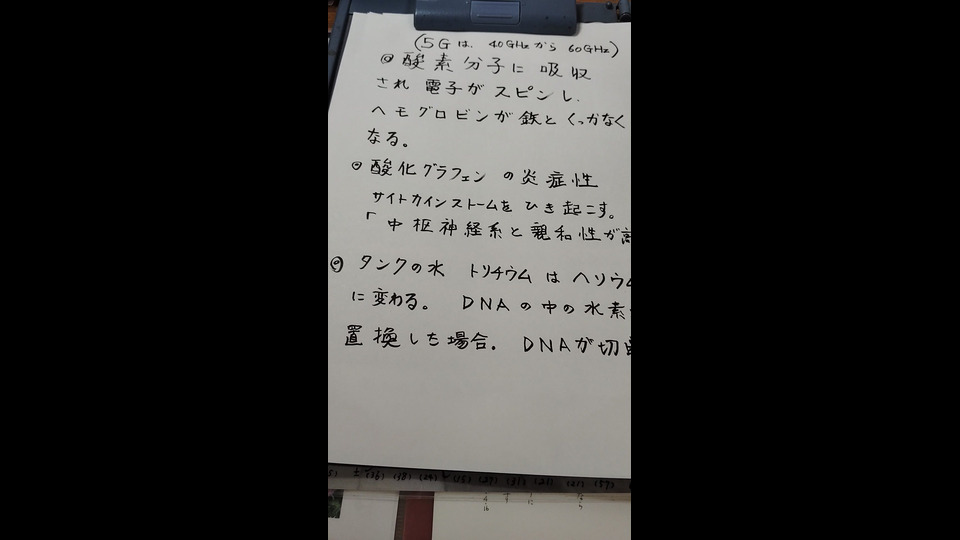 (5Gは、40GHzから60GHz)
◎酸素分子に吸収
され電子がスピンし、
ヘモグロビンが鉄とくっかなく
なる。
◎酸化グラフェンの炎症性
サイトカインストームをひき起こす。
「中枢神経系と親和性が高
◎タンクの水 トリチウムはヘリウム
に変わる。DNAの中の水素
置換した場合、DNAが切
(36) (38) (24) (15) (29) (31) (21) (59)